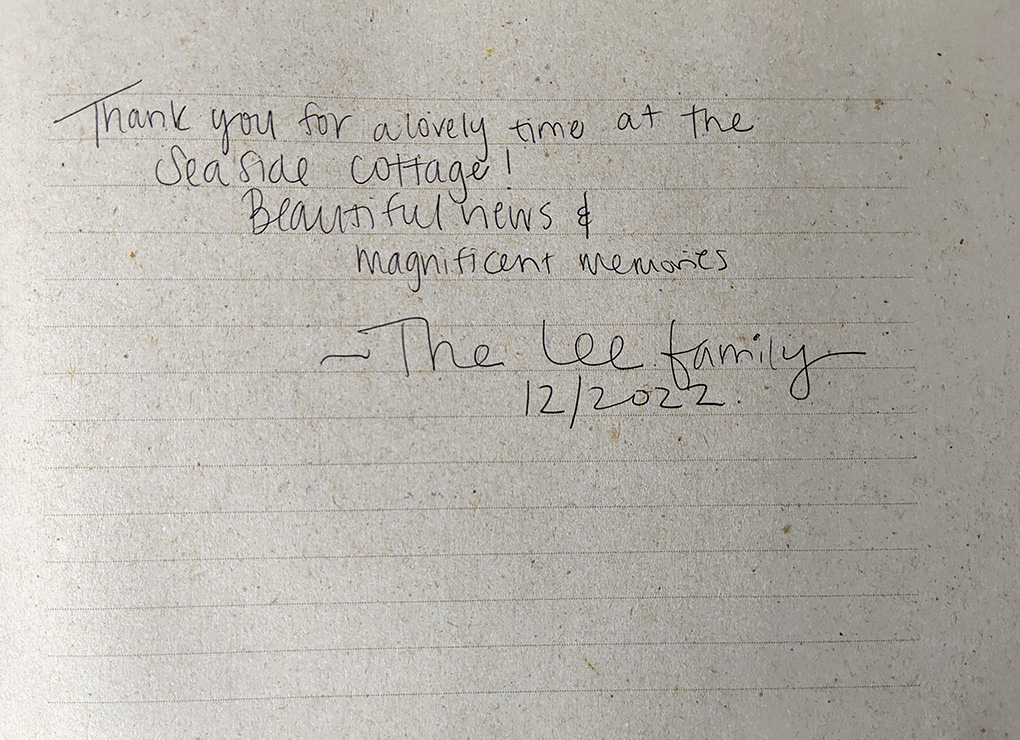 Thank you for a lovely time at the
Seaside cottage!
Beautiful views &
magnificent memories
~ The Lee family
12/2022.